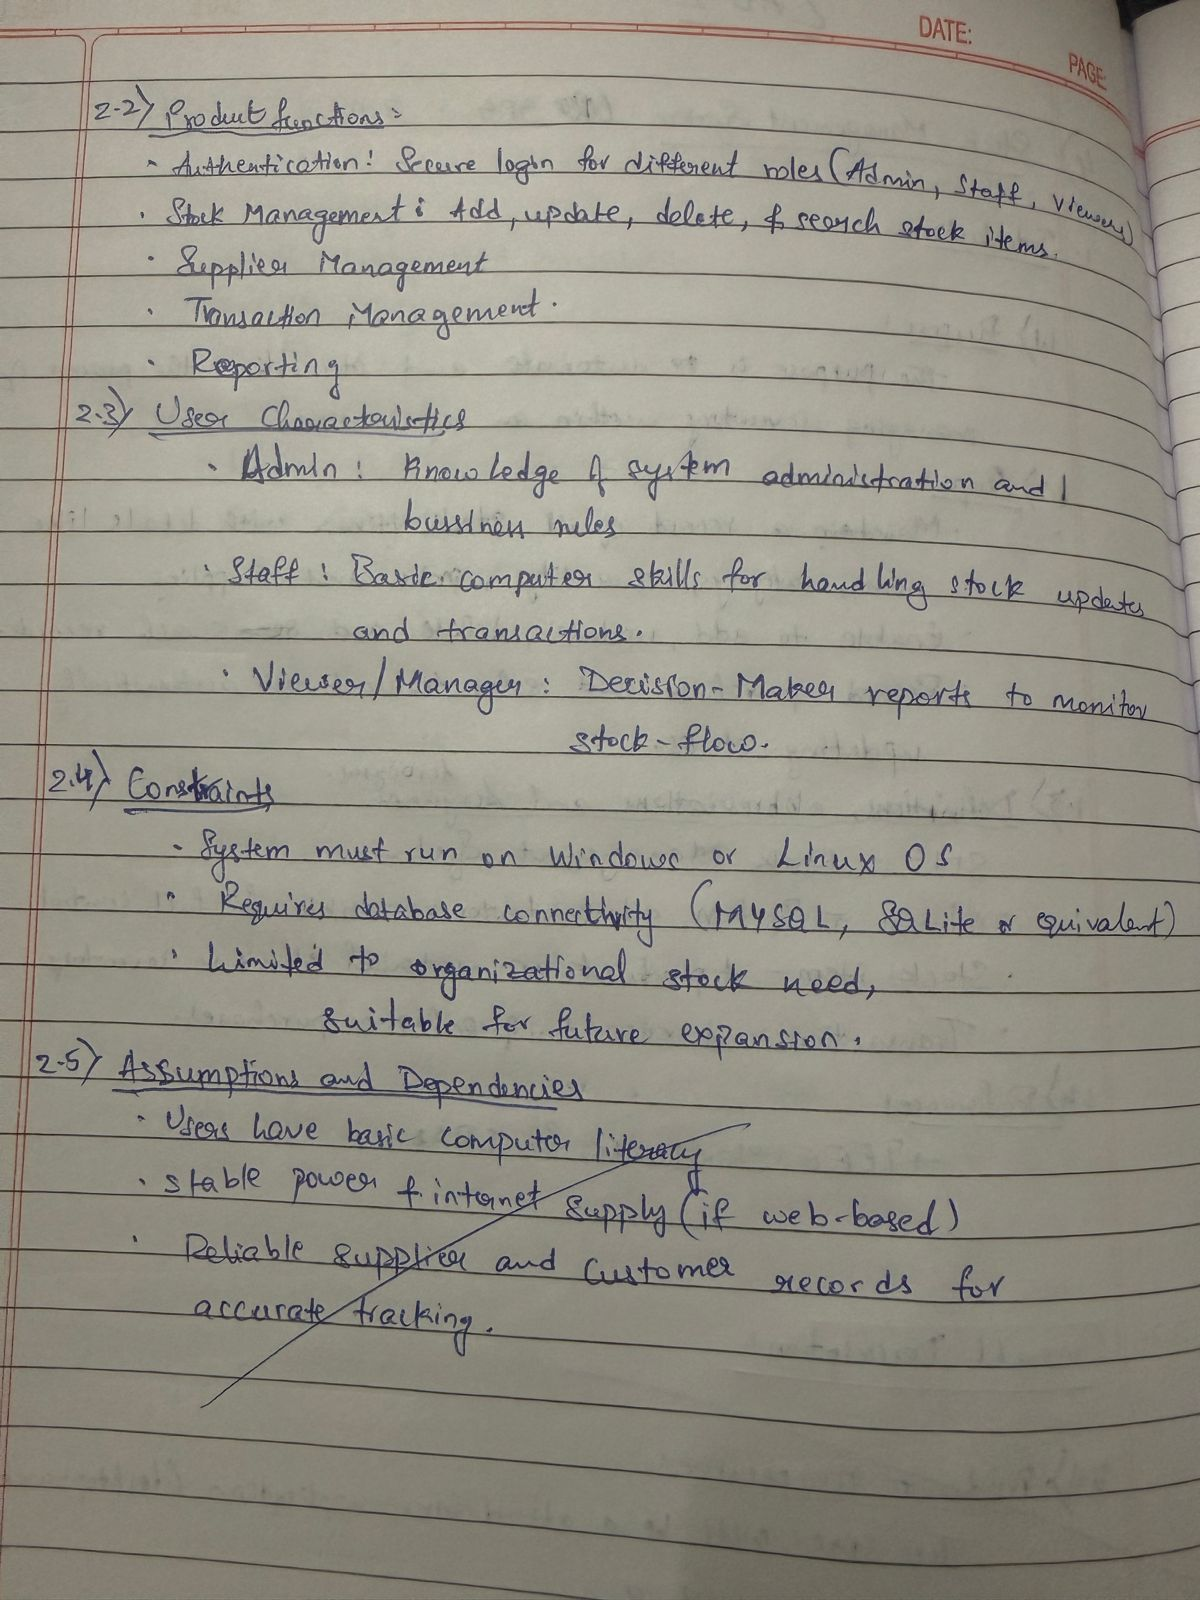 DATE:
PAGE
2.2) Product functions:
· Authentication: Secure login for different roles (Admin, Staff, Viewers)
· Stock Management: Add, update, delete, & search stock items.
· Supplier Management
· Transaction Management.
· Reporting
2.3) User Characteristics
· Admin: Knowledge of system administration and
bussiness rules
· Staff: Basic computer skills for handling stock updates
and transactions.
· Viewer/Manager: Decision-Maker reports to monitor
stock-flow.
2.4) Constraints
· System must run on Windows or Linux OS
· Requires database connectivity (MYSQL, SQLite or equivalent)
· Limited to organizational stock need,
suitable for future expansion.
2.5) Assumptions and Dependencies
· Users have basic computer literacy
· stable power & internet supply (if web-based)
· Reliable supplier and customer records for
accurate tracking.